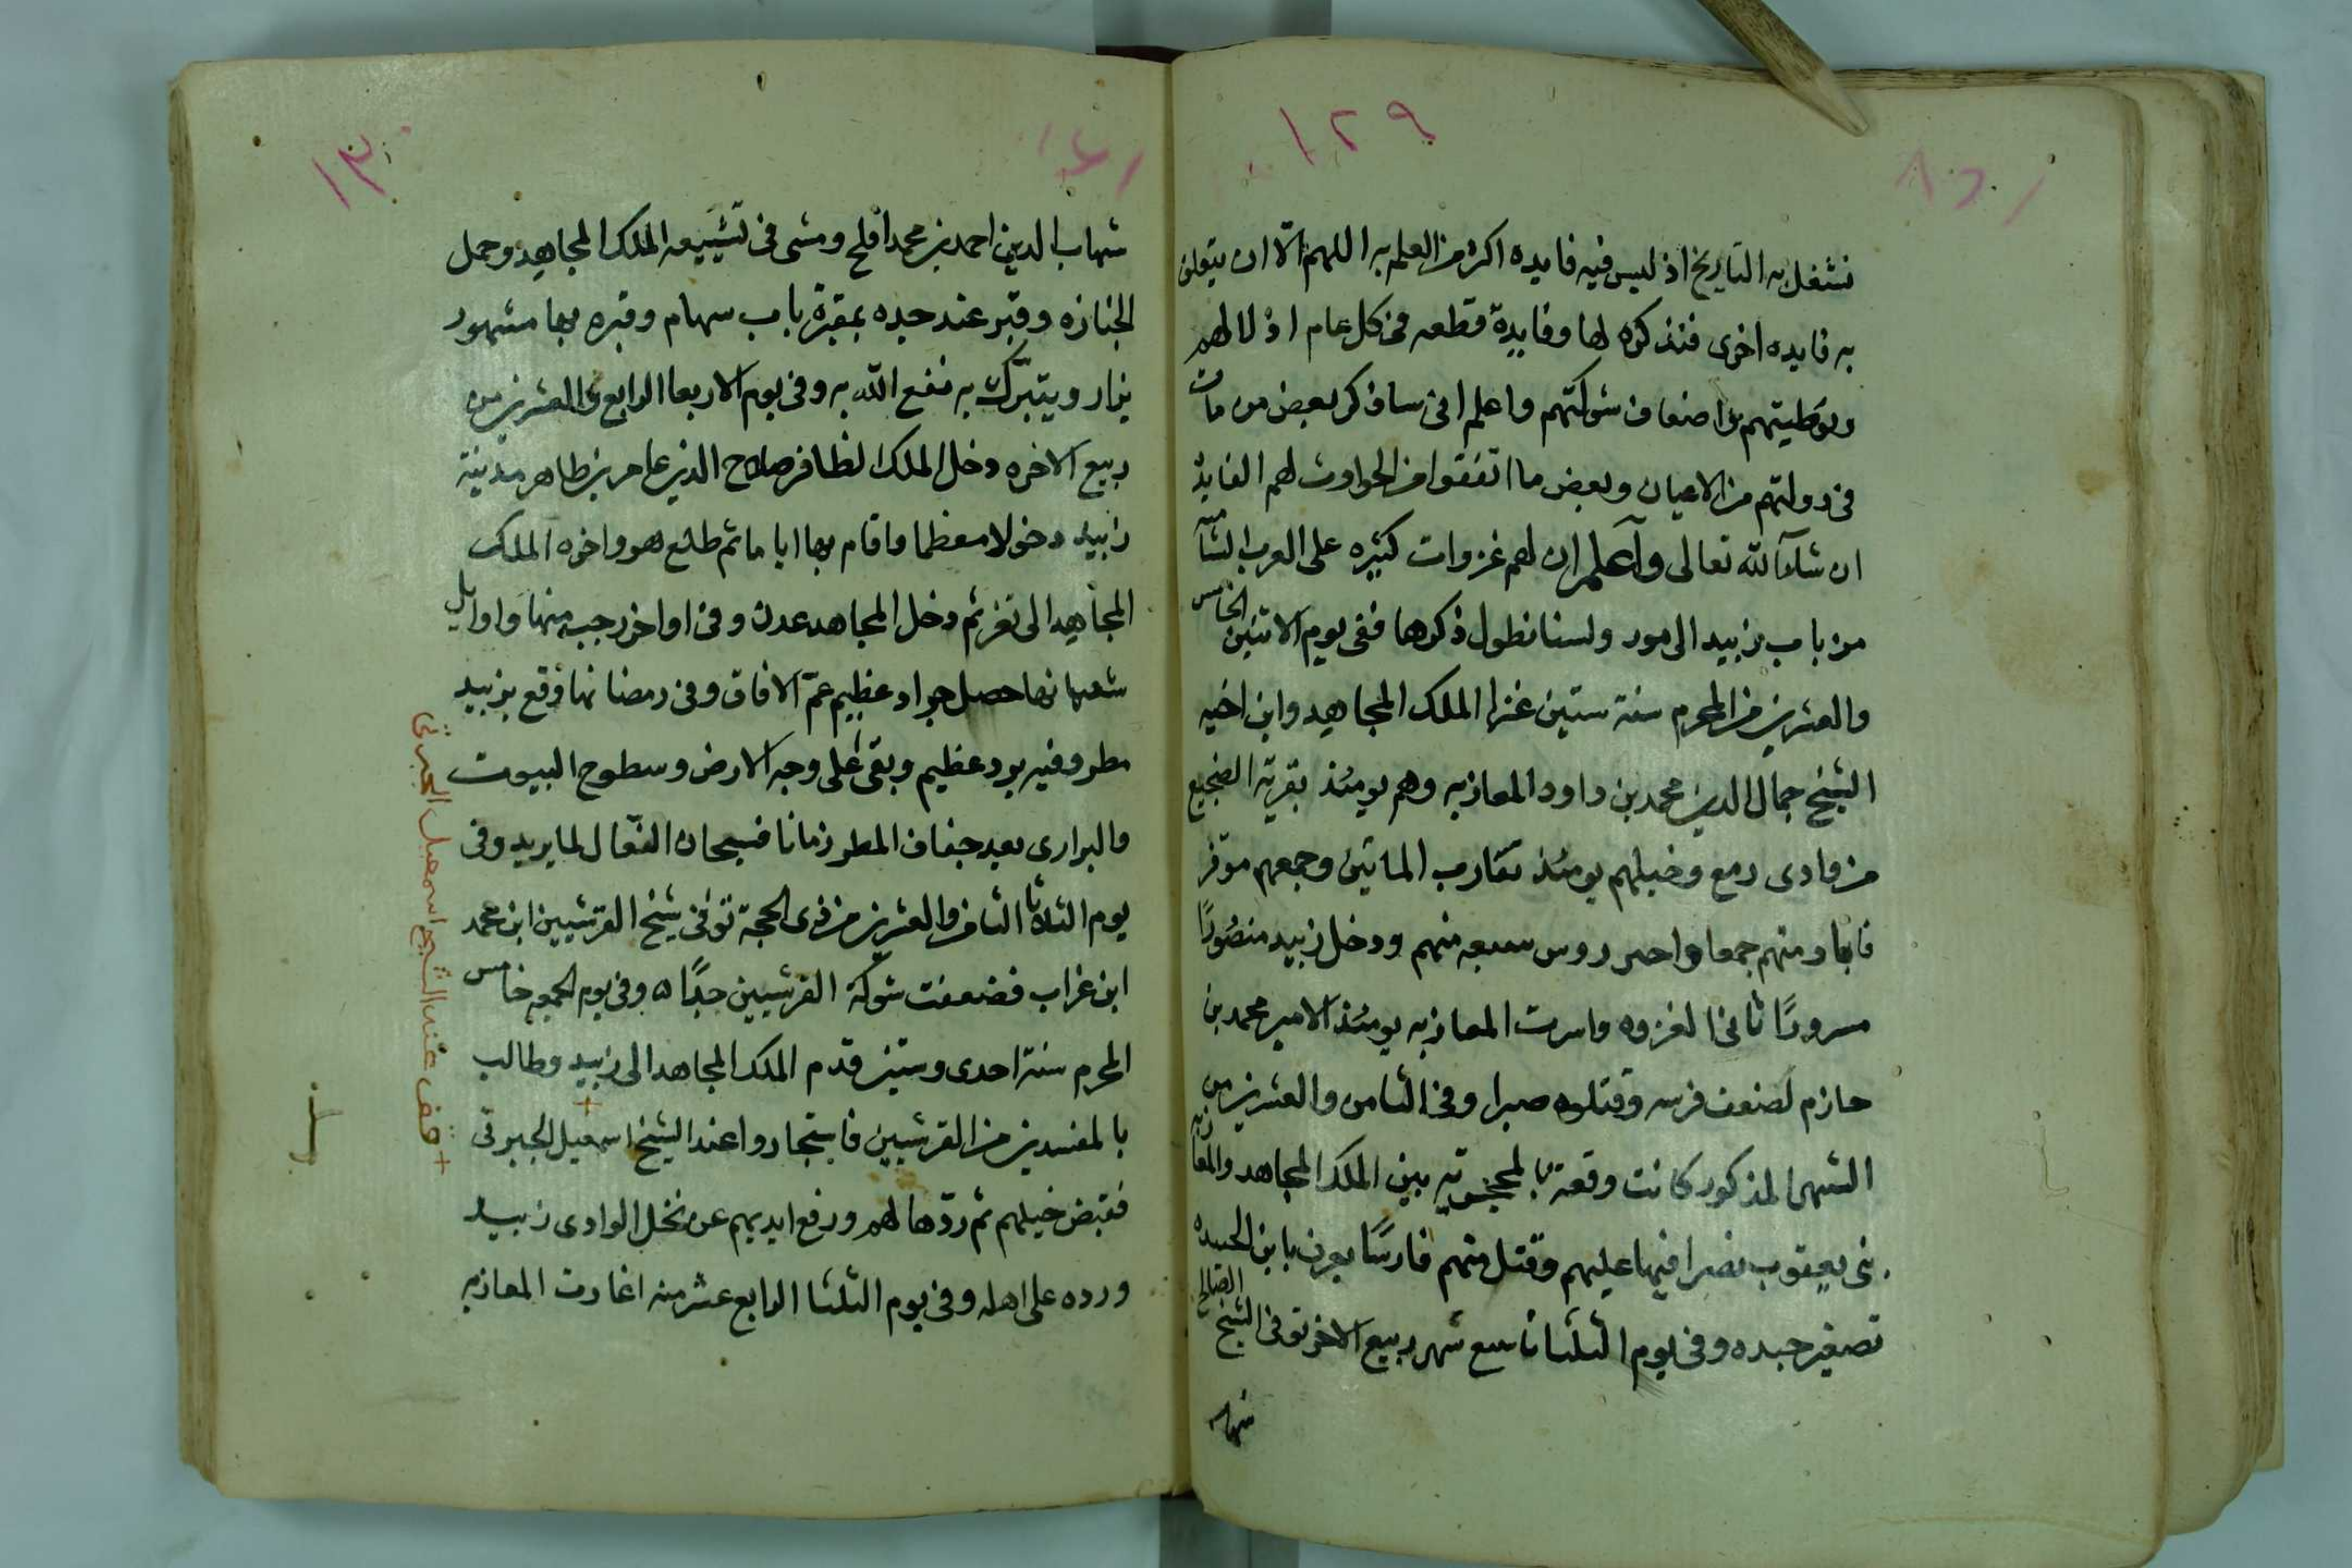 ١٢٩
نشغل به التاريخ اذ ليس فيه فايده اكثر من العلم به اللهم الا ان يتعلق
به فايده اخرى فنذكره لها وفايدة قطعه في كل عام اذلالهم
وتوطيتهم واضعاف شوكتهم واعلم اني ساذكر بعض من مات
في دولتهم من الاعيان وبعض ما اتفق من الحوادث لهم الفايدة
ان شاء الله تعالى واعلم ان لهم غزوات كثيره على العرب الشاميه
من باب زبيد الى مور ولسنا نطول ذكرها ففي يوم الاثنين الخامس
والعشرين من المحرم سنة ستين غزا الملك المجاهد وابن اخيه
الشيخ جمال الدين محمد بن داود المعازبه وهم يومئذ بقرية الضجيع
من وادي رمع وخيلهم يومئذ تقارب المائتين وجمعهم موفر
فاباد منهم جمعا واحتز روس سبعه منهم ودخل زبيد منصورًا
مسرورًا ثاني الغزوه واسرت المعازبه يومئذ الامير محمد بن
حازم لضعف فرسه وقتلوه صبرا وفي الثامن والعشرين من
الشهر المذكور كانت وقعة بين الملك المجاهد والمعازبه
بني يعقوب نصرا فيها عليهم وقتل منهم فارسًا يعرف بابن الحبيده
تصغير حبده وفي يوم الثلثا تاسع شهر ربيع الاخر توفي الشيخ الصالح
شهاب
١٣٠
شهاب الدين احمد بن محمد افلح ومشى في تشييعه الملك المجاهد وحمل
الجنازه وقبر عند جده بمقبرة باب سهام وقبره بها مشهور
يزار ويتبرك به نفع الله به وفي يوم الاربعا الرابع والعشرين من
ربيع الاخره دخل الملك الظافر صلاح الدين عامر بن طاهر مدينة
زبيد دخولا معظما واقام بها اياما ثم طلع هو واخوه الملك
المجاهد الى تعز ثم دخل المجاهد عدن وفي اواخر رجب منها واوايل
شعبانها حصل جراد عظيم عم الافاق وفي رمضانها وقع بزبيد
مطر وفيه برد عظيم وبقى على وجه الارض وسطوح البيوت
والبراري بعد جفاف المطر زمانا فسبحان الفعّال لما يريد وفي
يوم الثلاثا الثامن والعشرين من ذي الحجة توفي شيخ القرشيين ابن محمد
ابن غراب فضعفت شوكة القرشيين جدًا ٥ وفي يوم الجمعه خامس
المحرم سنة احدى وستين قدم الملك المجاهد الى زبيد وطالب
بالمفسدين من القرشيين فاستجاروا عند الشيخ اسمعيل الجبرتي
فقبض خيلهم ثم ردّها لهم ورفع ايديهم عن نخل الوادي زبيد
ورده على اهله وفي يوم الثلثا الرابع عشر منه اغارت المعازبه
قف عند الشيخ اسمعيل الجبرتي